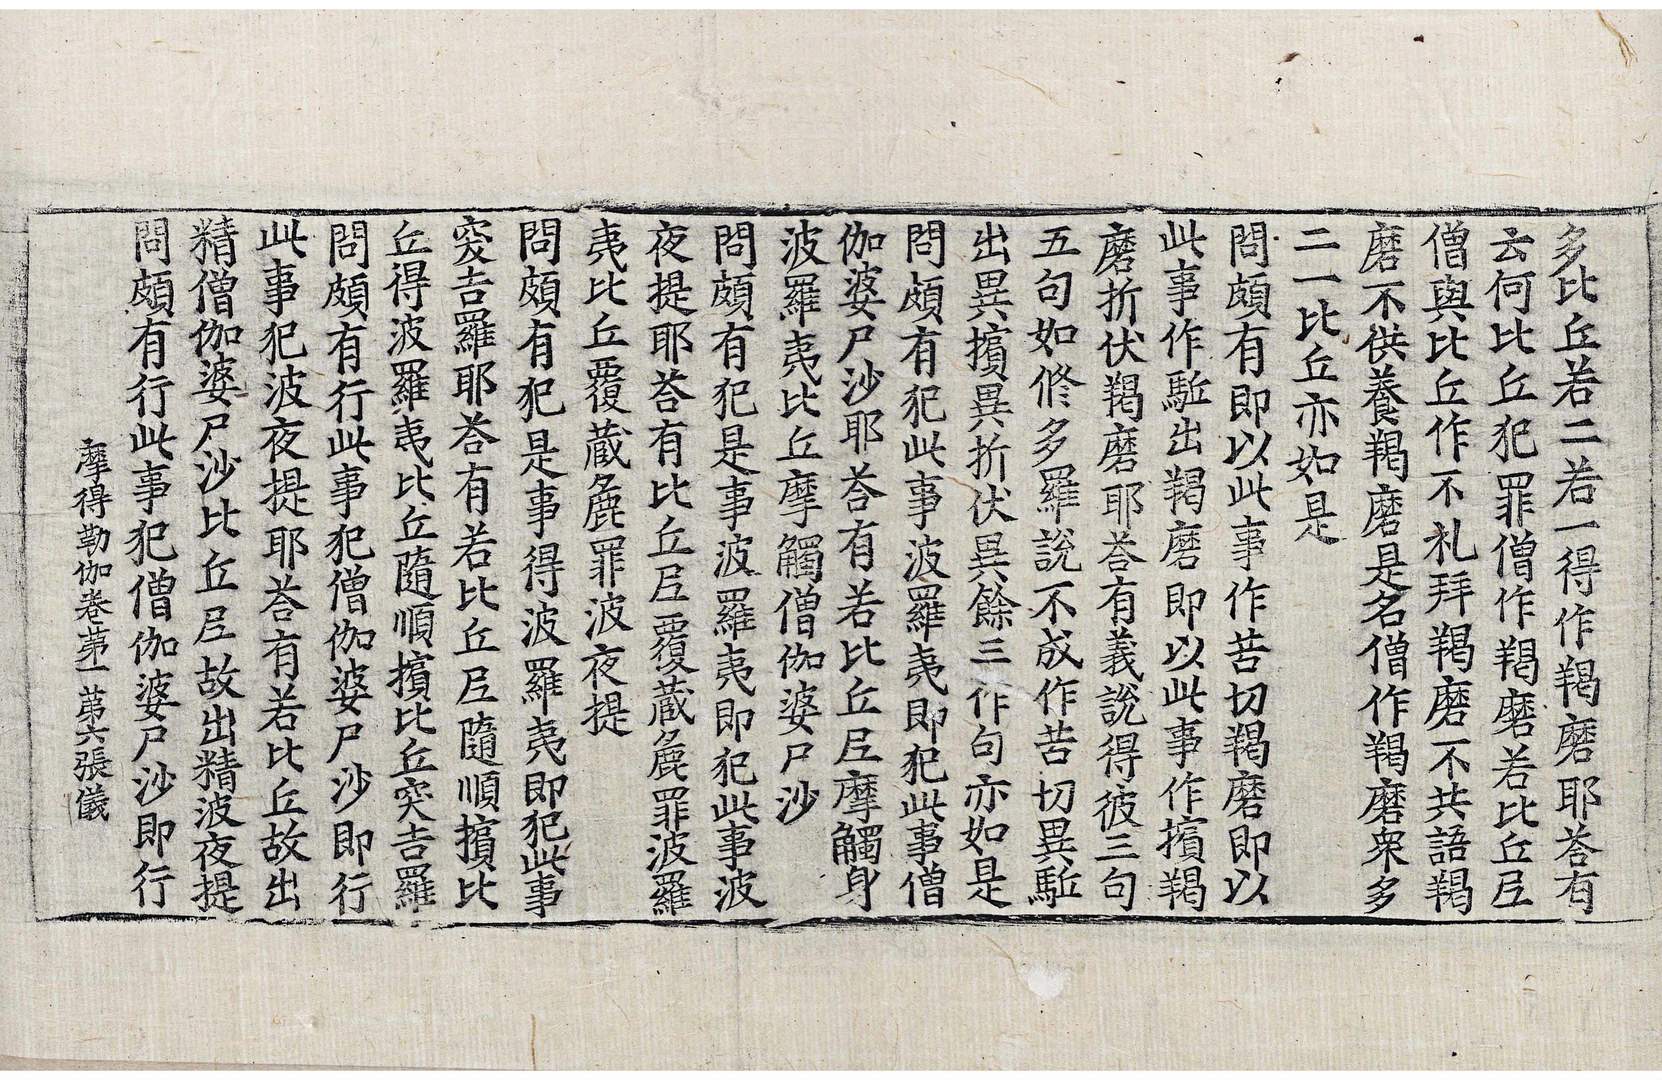 多比丘若二若一得作羯磨耶荅有
云何比丘犯罪僧作羯磨若比丘𡰱
僧與比丘作不礼拜羯磨不共語羯
磨不供養羯磨是名僧作羯磨衆多
二一比丘亦如是
問頗有即以此事作苦切羯磨即以
此事作駈出羯磨即以此事作擯羯
磨折伏羯磨耶荅有義說得彼三句
五句如修多羅說不成作苦切異駈
出異擯異折伏異餘三作句亦如是
問頗有犯此事波羅夷即犯此事僧
伽婆尸沙耶荅有若比丘𡰱摩觸身
波羅夷比丘摩觸僧伽婆尸沙
問頗有犯是事波羅夷即犯此事波
夜提耶荅有比丘𡰱覆藏麁罪波羅
夷比丘覆藏麁罪波夜提
問頗有犯是事得波羅夷即犯此事
突吉羅耶荅有若比丘𡰱隨順擯比
丘得波羅夷比丘隨順擯比丘突吉羅
問頗有行此事犯僧伽婆尸沙即行
此事犯波夜提耶荅有若比丘故出
精僧伽婆尸沙比丘𡰱故出精波夜提
問頗有行此事犯僧伽婆尸沙即行
摩得勒伽卷第一 第六張 儀